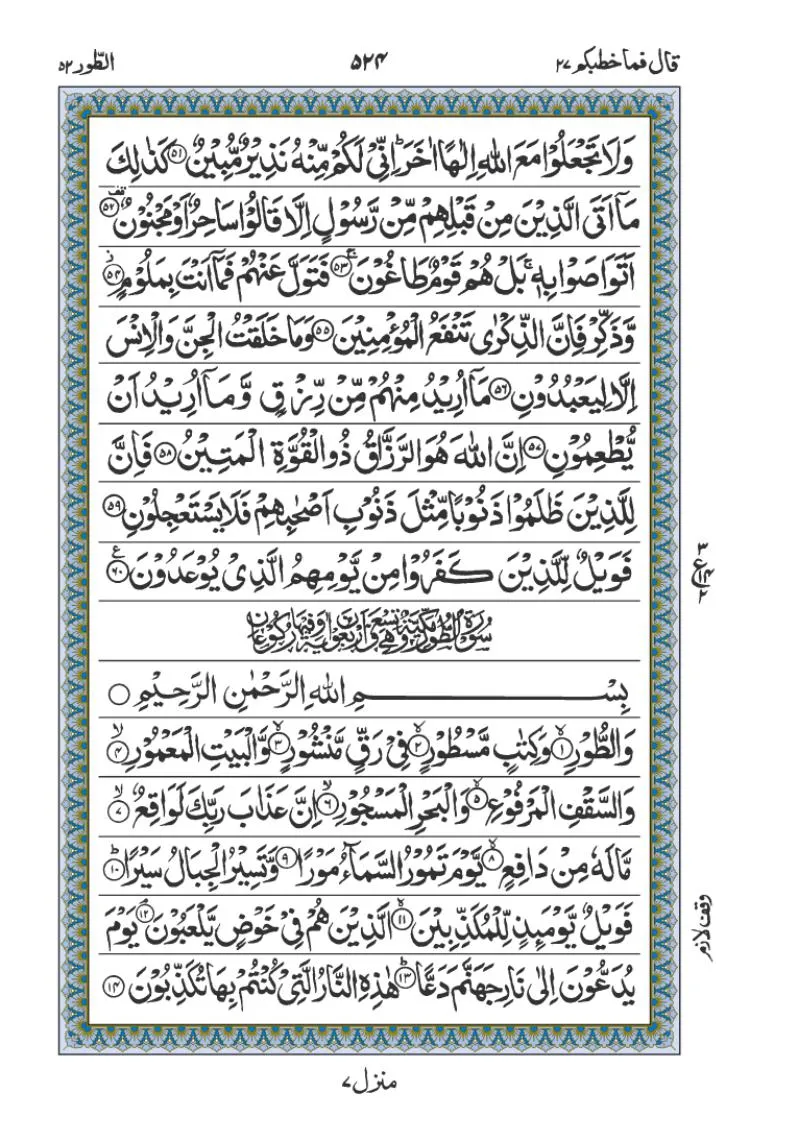 قال فماخطبكم ٢٧ ٥٢٤ الطّور ٥٢
وَلَا تَجۡعَلُوۡا مَعَ اللّٰهِ اِلٰهًا اٰخَرَ‌ؕ اِنِّىۡ لَـكُمۡ مِّنۡهُ نَذِيۡرٌ مُّبِيۡنٌ‌ۚ ﴿٥١﴾ كَذٰلِكَ
مَاۤ اَتَى الَّذِيۡنَ مِنۡ قَبۡلِهِمۡ مِّنۡ رَّسُوۡلٍ اِلَّا قَالُوۡا سَاحِرٌ اَوۡ مَجۡنُوۡنٌ ﴿٥٢﴾
اَتَوَاصَوۡا بِهٖ‌ۚ بَلۡ هُمۡ قَوۡمٌ طَاغُوۡنَ‌ۚ ﴿٥٣﴾ فَتَوَلَّ عَنۡهُمۡ فَمَاۤ اَنۡتَ بِمَلُوۡمٍ ﴿٥٤﴾
وَّذَكِّرۡ فَاِنَّ الذِّكۡرٰى تَنۡفَعُ الۡمُؤۡمِنِيۡنَ ﴿٥٥﴾ وَمَا خَلَقۡتُ الۡجِنَّ وَالۡاِنۡسَ
اِلَّا لِيَعۡبُدُوۡنِ ﴿٥٦﴾ مَاۤ اُرِيۡدُ مِنۡهُمۡ مِّنۡ رِّزۡقٍ وَّمَاۤ اُرِيۡدُ اَنۡ
يُّطۡعِمُوۡنِ ﴿٥٨﴾ اِنَّ اللّٰهَ هُوَ الرَّزَّاقُ ذُوالۡقُوَّةِ الۡمَتِيۡنُ ﴿٥٨﴾ فَاِنَّ
لِلَّذِيۡنَ ظَلَمُوۡا ذَنُوۡبًا مِّثۡلَ ذَنُوۡبِ اَصۡحٰبِهِمۡ فَلَا يَسۡتَعۡجِلُوۡنِ ﴿٥٩﴾
فَوَيۡلٌ لِّلَّذِيۡنَ كَفَرُوۡا مِنۡ يَّوۡمِهِمُ الَّذِىۡ يُوۡعَدُوۡنَ ﴿٦٠﴾
٣ ع ١٤ ٢
سُوۡرَةُ الطُّوۡرِ مَكِّيَّةٌ وَّهِىَ تِسۡعٌ وَّاَرۡبَعُوۡنَ اٰيَةً وَّفِيۡهَا رُكُوۡعَانِ
بِسۡمِ اللّٰهِ الرَّحۡمٰنِ الرَّحِيۡمِ
وَالطُّوۡرِۙ ﴿١﴾ وَكِتٰبٍ مَّسۡطُوۡرٍۙ ﴿٢﴾ فِىۡ رَقٍّ مَّنۡشُوۡرٍۙ ﴿٣﴾ وَّالۡبَيۡتِ الۡمَعۡمُوۡرِۙ ﴿٤﴾
وَالسَّقۡفِ الۡمَرۡفُوۡعِۙ ﴿٥﴾ وَالۡبَحۡرِ الۡمَسۡجُوۡرِۙ ﴿٦﴾ اِنَّ عَذَابَ رَبِّكَ لَوَاقِعٌۙ ﴿٧﴾
مَّا لَهٗ مِنۡ دَافِعٍۙ ﴿٨﴾ يَّوۡمَ تَمُوۡرُ السَّمَآءُ مَوۡرًاۙ ﴿٩﴾ وَّتَسِيۡرُ الۡجِبَالُ سَيۡرًاؕ ﴿١٠﴾
فَوَيۡلٌ يَّوۡمَٮِٕذٍ لِّلۡمُكَذِّبِيۡنَۙ ﴿١١﴾ الَّذِيۡنَ هُمۡ فِىۡ خَوۡضٍ يَّلۡعَبُوۡنَ‌ۘ ﴿١٢﴾ يَوۡمَ
وقف لازم
يُدَعُّوۡنَ اِلٰى نَارِ جَهَنَّمَ دَعًّاؕ ﴿١٣﴾ هٰذِهِ النَّارُ الَّتِىۡ كُنۡتُمۡ بِهَا تُكَذِّبُوۡنَ ﴿١٤﴾
منزل ٧